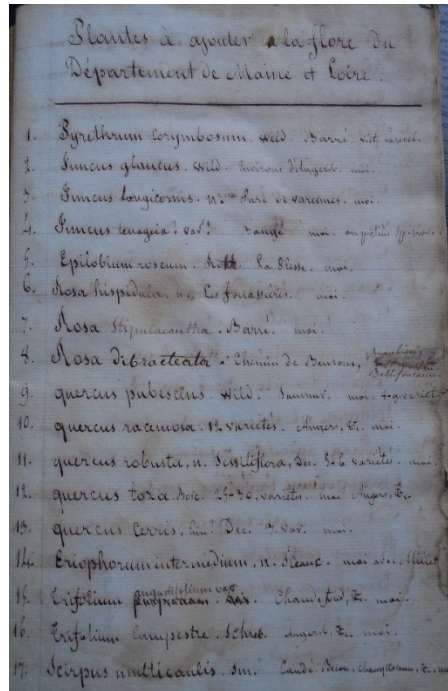 Plantes à ajouter à la flore du
Département de Maine et Loire.
1. Pyrethrum Corymbosum. Wild. Barré.
2. Juncus glaucus. Wild. Environs d'Angers. moi.
3. Juncus longicornis. n. Parc de varennes. moi.
4. Juncus tenageia. var. moi.
5. Epilobium roseum. Roth. moi.
6. Rosa hispidula. n. Les fouassières. moi.
7. Rosa Stipulacantha. Barré. moi.
8. Rosa Dibracteata. Chemin de
9. quercus pubescens. Wild. Saumur. moi.
10. quercus racemosa. 12 variétés. Angers, &. moi.
11. quercus robusta, n. Sessiliflora, Dec. 5-6 variétés. moi
12. quercus toza. Bosc. 25-30, variétés. moi Angers, &.
13. quercus Cerris. Lin. Dec. 3. var. moi.
14. Eriophorum intermedium. n. moi avec Millet
15. Trifolium angustifolium var. Chaudefond, &. moi.
16. Trifolium Campestre. Schreb. Angers, &. moi.
17. Scirpus multicaulis. Sm. Candé. Becon. Champtoceaux, &. moi